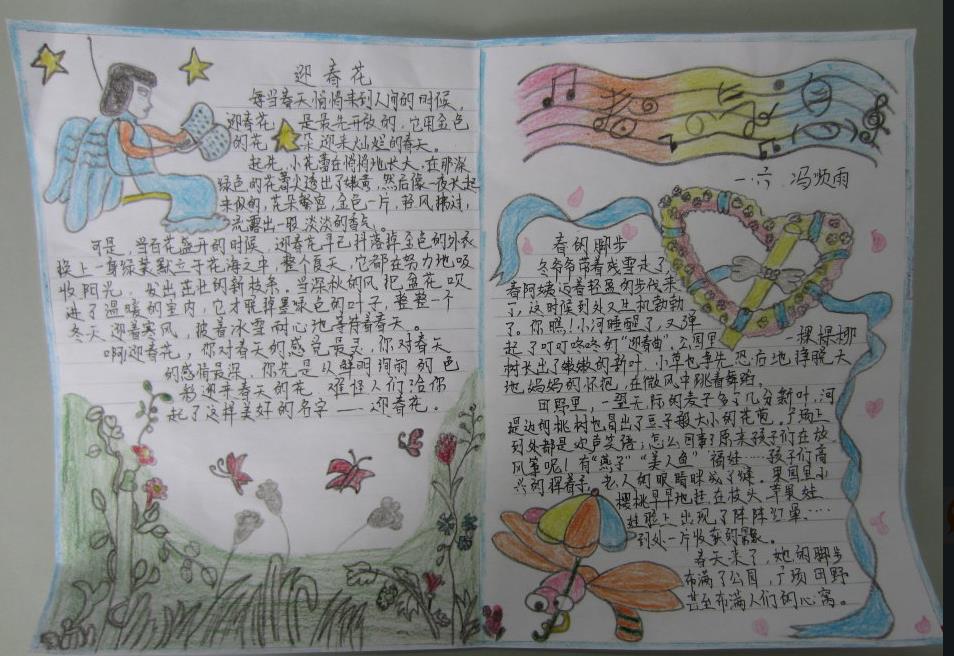 迎春花
每当春天悄悄来到人间的时候,
迎春花 是最先开放的,它用金色
的花 朵迎来灿烂的春天。
起先,小花蕾在悄悄地长大,在那深
绿色的花萼尖透出了嫩黄,然后像一夜长起
来似的,花朵繁密,金色一片,轻风拂过,
流露出一股淡淡的香气。
可是,当百花盛开的时候,迎春花早已抖落掉金色的外衣
换上一身绿装默立于花海之中,整个夏天,它都在努力地吸
收阳光,发出茁壮的新枝条。当深秋的风把盆花吹
进了温暖的室内,它才脱掉墨绿色的叶子,整整一个
冬天迎着寒风,披着冰雪耐心地等待着春天。
啊迎春花,你对春天的感觉最灵,你对春天
的感情最深,你先是以鲜明绚丽的色
彩迎来春天的花 难怪人们给你
起了这样美好的名字——迎春花。
一.六 冯
雨
春的脚步
冬爷爷带着残雪走了,
春阿姨迈着轻盈的步伐来
了,这时候到处又生机勃勃
了。你瞧!小河睡醒了,又弹
起了叮叮咚咚的“迎春曲”,公园里 一棵棵
树长出了嫩嫩的新叶,小草也争先恐后地挣脱大
地妈妈的怀抱,在微风中跳着舞蹈。
田野里,一望无际的麦子多了几分新叶,河
堤边的桃树也冒出了豆子般大小的花苞。广场上
到处都是欢声笑语;怎么回事?原来孩子们在放
风筝呢!有“燕子”“美人鱼”福娃……孩子们高
兴的挥着手,老人的眼睛眯成了缝。果园里小
樱桃早早地挂在枝头,苹果娃
娃脸上出现了阵阵红晕……
到处一片收获的景象。
春天来了,她的脚步
布满了公园,广场田野
甚至布满人们的心窝。